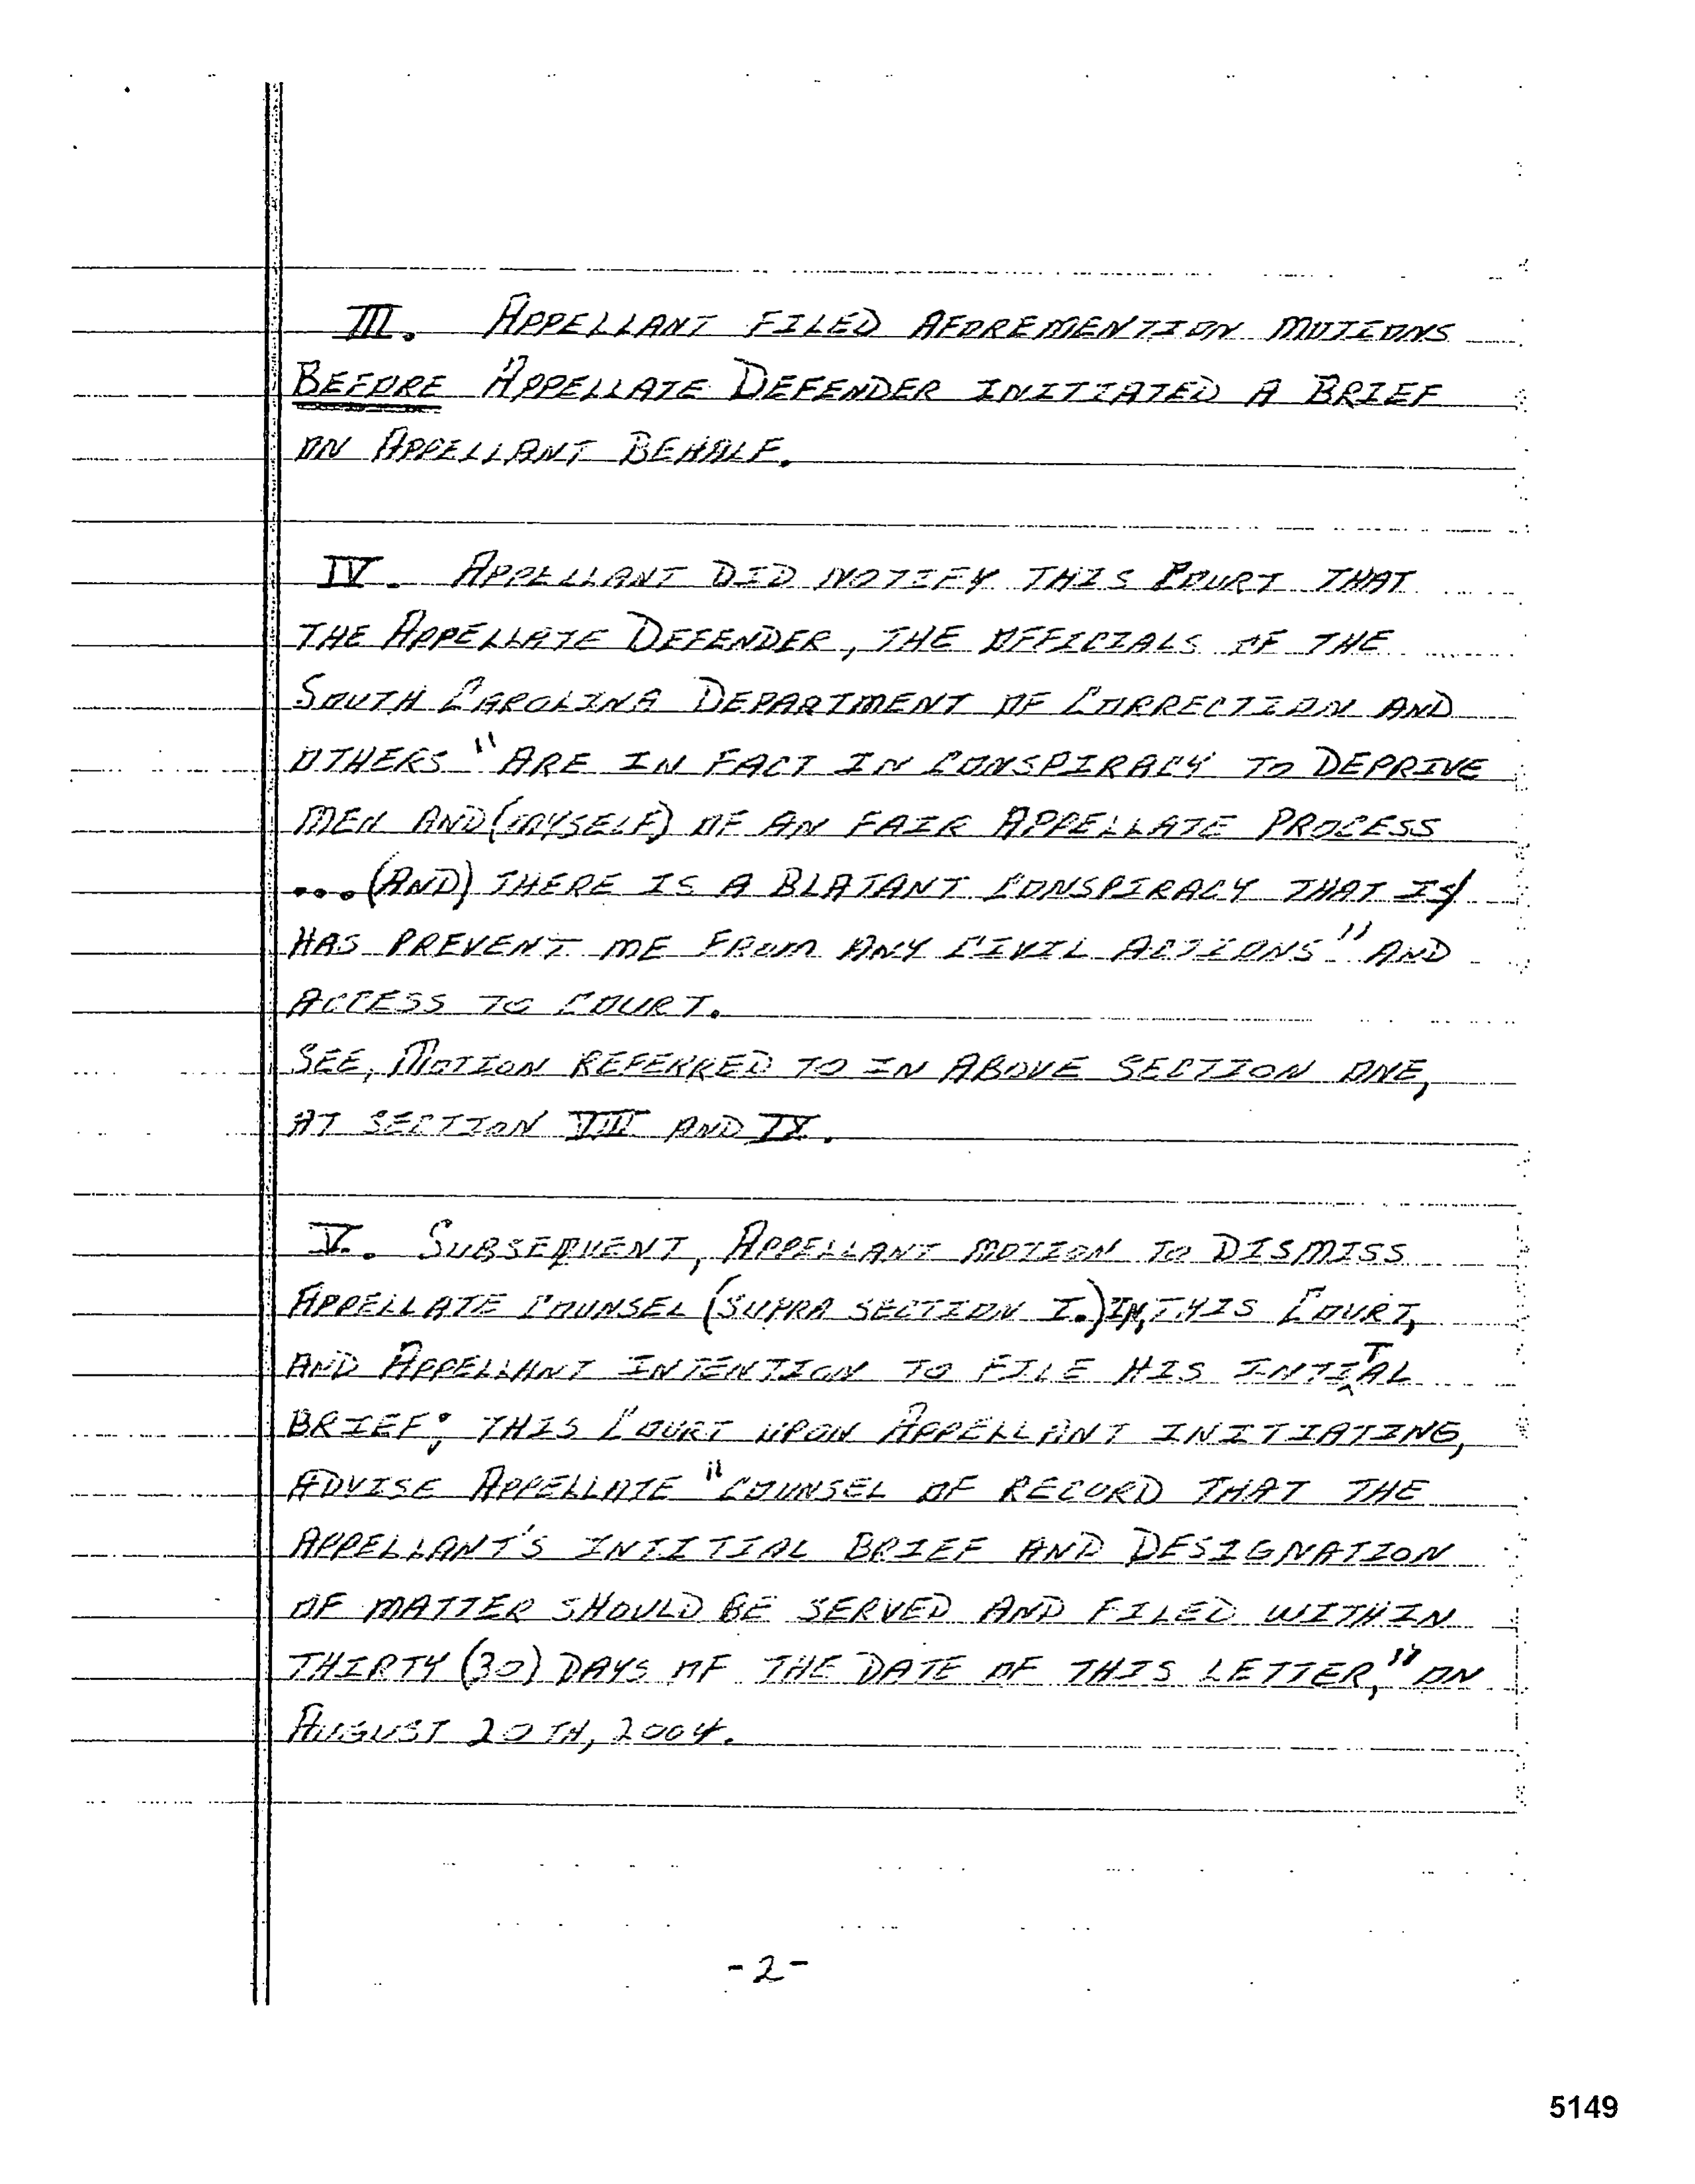 III. APPELLANT FILED AFOREMENTION MOTIONS
BEFORE APPELLATE DEFENDER INITIATED A BRIEF
ON APPELLANT BEHALF.
IV. APPELLANT DID NOTIFY THIS COURT THAT
THE APPELLATE DEFENDER, THE OFFICIALS OF THE
SOUTH CAROLINA DEPARTMENT OF CORRECTION AND
OTHERS "ARE IN FACT IN CONSPIRACY TO DEPRIVE
MEN AND (MYSELF) OF AN FAIR APPELLATE PROCESS
... (AND) THERE IS A BLATANT CONSPIRACY THAT IS/
HAS PREVENT ME FROM ANY CIVIL ACTIONS" AND
ACCESS TO COURT.
SEE, MOTION REFERRED TO IN ABOVE SECTION ONE,
AT SECTION VIII AND IX.
V. SUBSEQUENT, APPELLANT MOTION TO DISMISS
APPELLATE COUNSEL (SUPRA SECTION I.) IN, THIS COURT,
AND APPELLANT INTENTION TO FILE HIS INTIIAL
BRIEF; THIS COURT UPON APPELLANT INITIATING,
ADVISE APPELLATE "COUNSEL OF RECORD THAT THE
APPELLANT'S INTITIAL BRIEF AND DESIGNATION
OF MATTER SHOULD BE SERVED AND FILED WITHIN
THIRTY (30) DAYS OF THE DATE OF THIS LETTER," ON
AUGUST 20TH, 2004.
-2-
5149